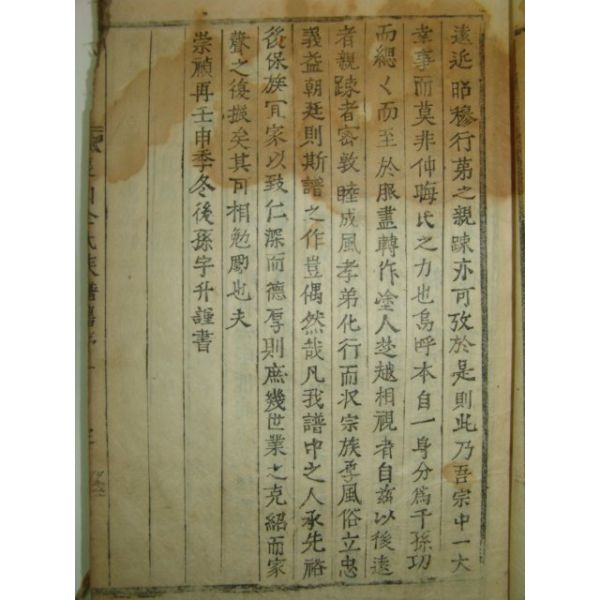 遠近昭穆行第之親踈亦可攷於是則此乃吾宗中一大
幸事而莫非仲晦氏之力也烏呼本自一身分爲千孫功
而緦〻而至於服盡轉作塗人楚越相視者自茲以後遠
者親踈者密敦睦成風孝弟化行而収宗族厚風俗立忠
義益朝廷則斯譜之作豈偶然哉凡我譜中之人承先裕
後保族冝家以致仁深而德厚則庶幾世業之克紹而家
聲之復振矣其可相勉勵也夫
崇禎再壬申季冬後孫字升謹書
金氏族譜